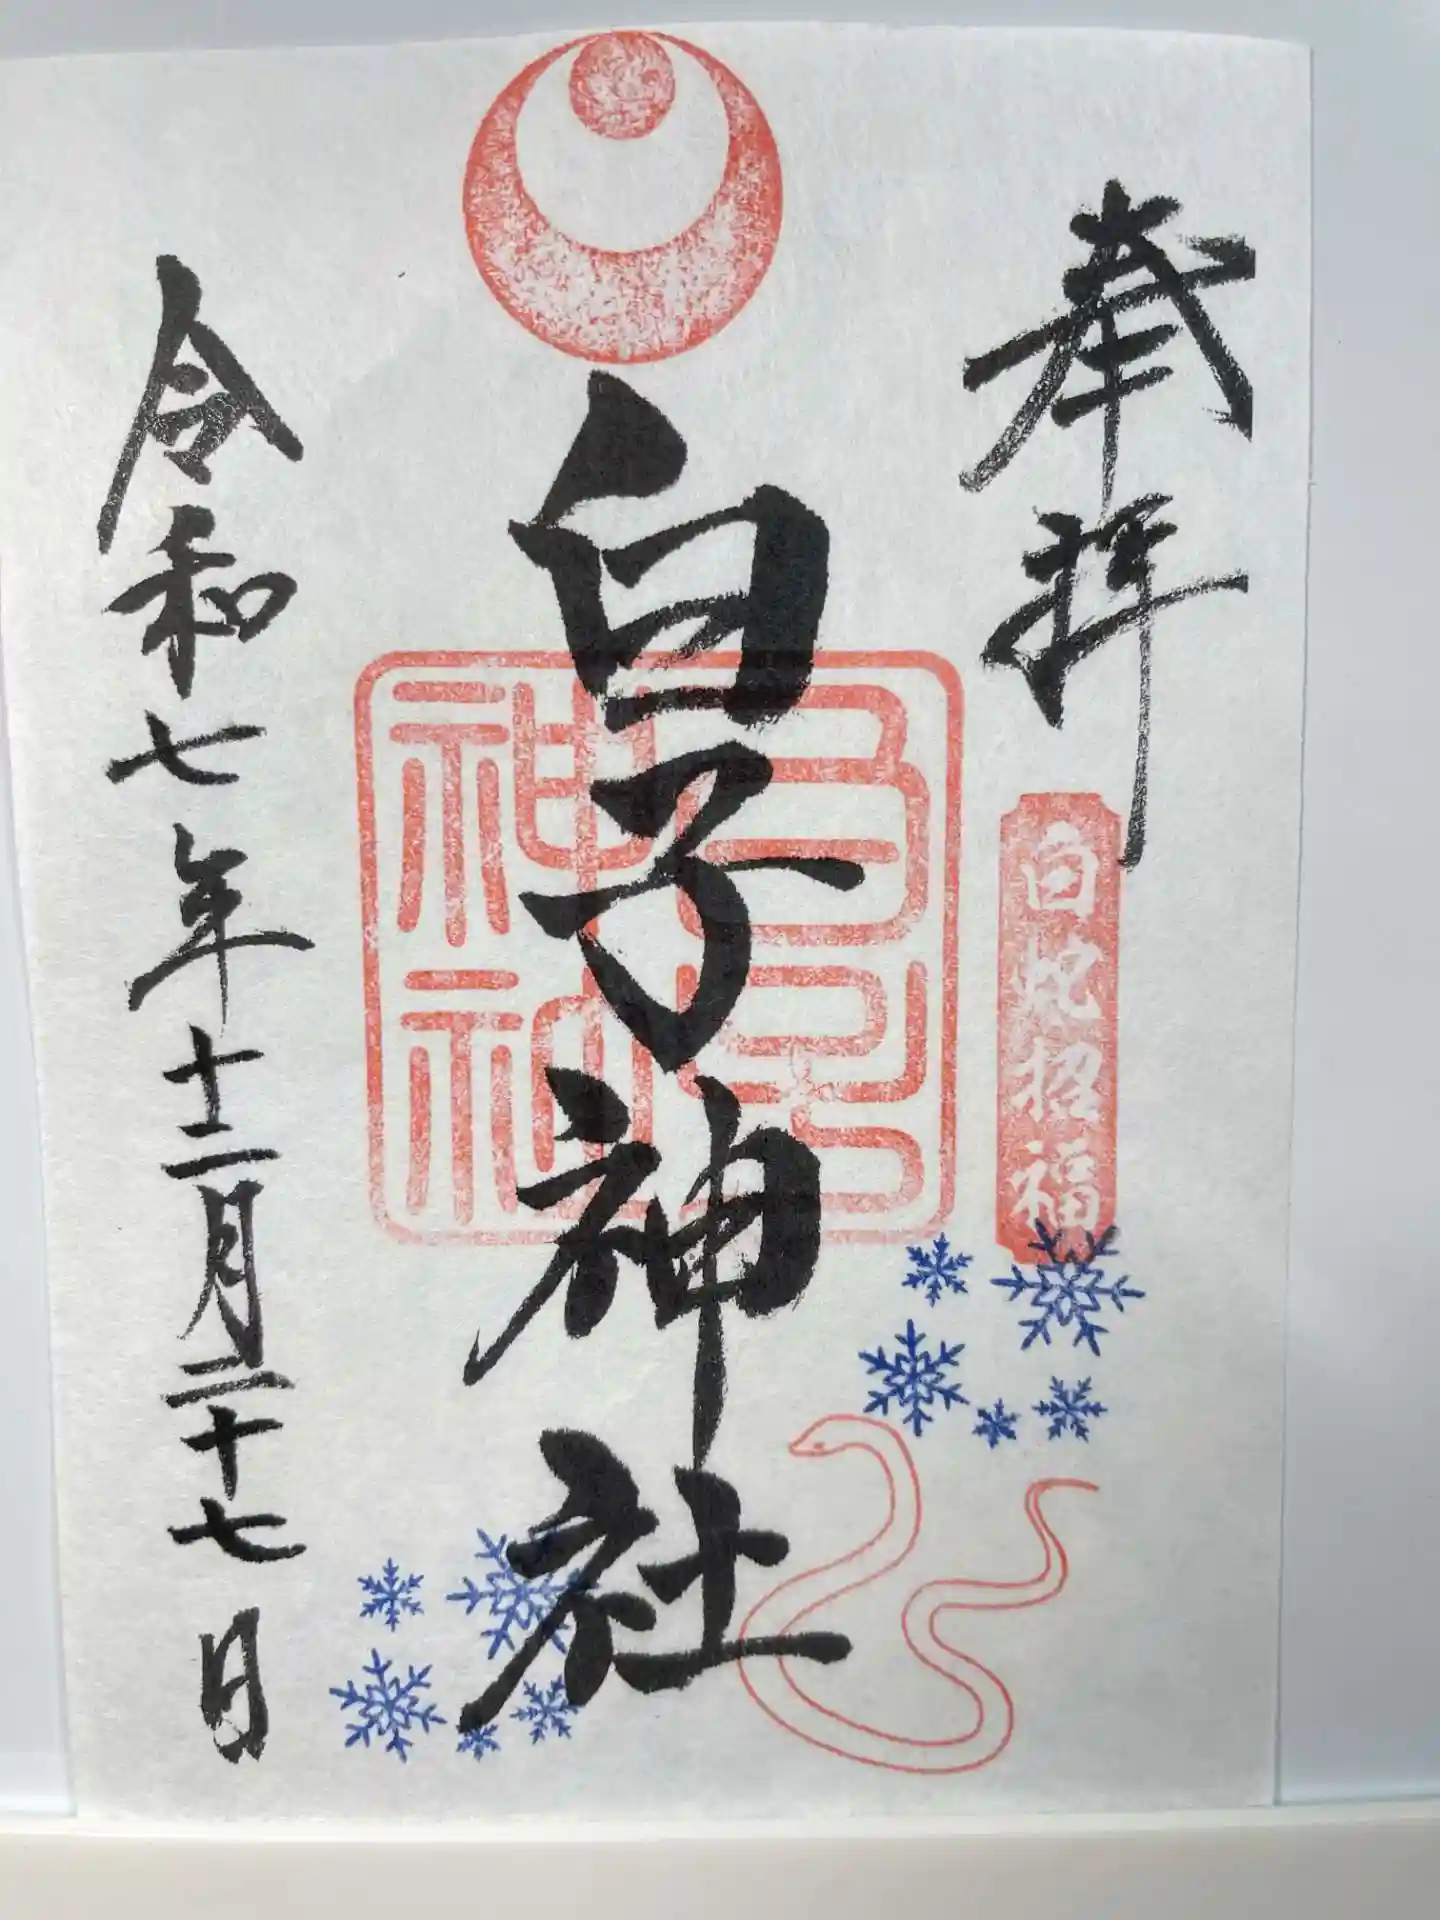 奉拝
白蛇招福
白子神社
白子神社
令和七年十二月二十七日